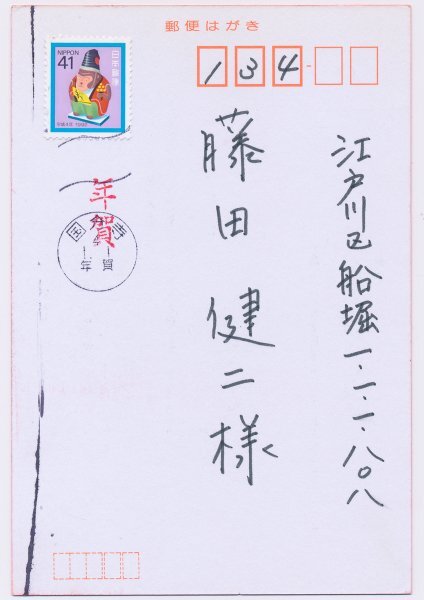 郵便はがき
134-
NIPPON
41
日本郵便
平成4年 1992
年賀
国分寺
年賀
江戸川区船堀一-一-一-八〇八
藤田健二様